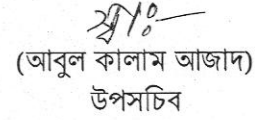 স্বাঃ—
(আবুল কালাম আজাদ)
উপসচিব